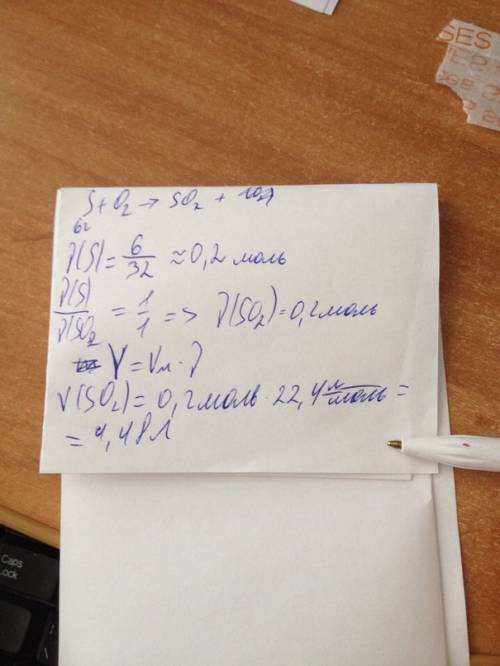 SES
S + O₂ → SO₂ +
6г
ν(S) = 6/32 ≈ 0,2 моль
ν(S)/ν(SO₂ = 1/1 => ν(SO₂) = 0,2 моль
V = Vм · ν
V(SO₂) = 0,2 моль · 22,4 л/моль =
= 4,48 л
Caps
Lock